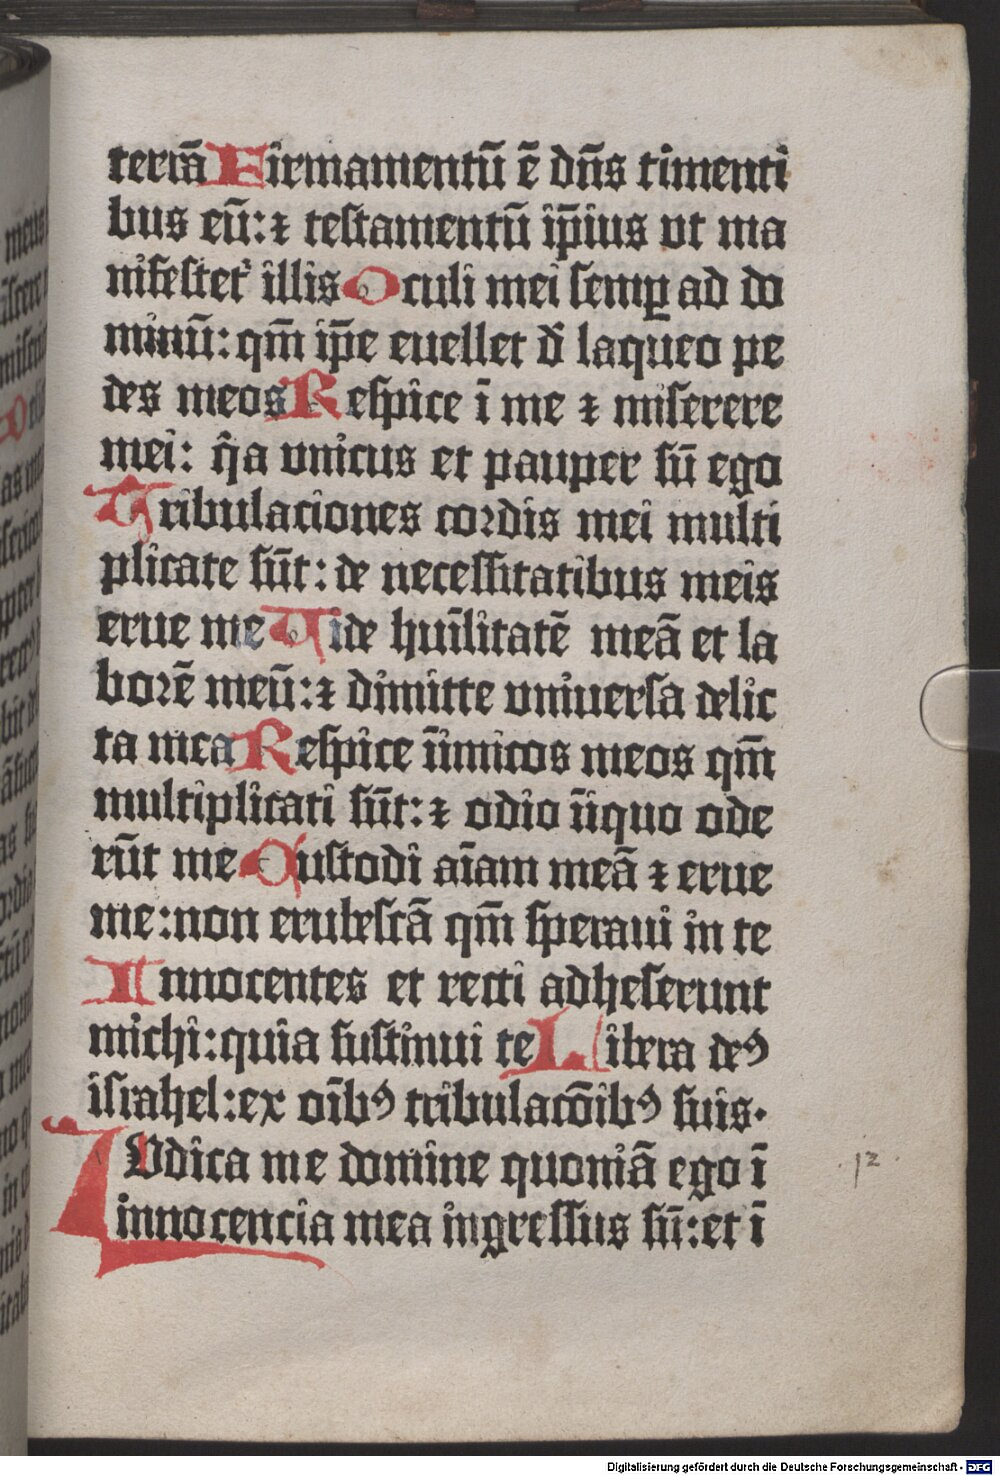 terrā Firmamentū ē dn̄s timenti
bus eū: ⁊ testamentū ip̄ius vt ma
nifestet᷑ illis Oculi mei semꝑ ad do
minū: qm̄ ip̄e euellet d̄ laqueo pe
des meos Respice ī me ⁊ miserere
mei: q̄a vnicus et pauper sū ego
Tribulaciones cordis mei multi
plicate sūt: de necessitatibus meis
erue me Vide hūilitatē meā et la
borē meū: ⁊ dimitte vniuersa delic
ta mea Respice īimicos meos qm̄
multiplicati sūt: ⁊ odio īiquo ode
rūt me Custodi aīam meā ⁊ erue
me: non erubescā qm̄ speraui in te
Innocentes et recti adheserunt
michi: quia sustinui te Libera deꝰ
israhel: ex oībꝰ tribulacōibꝰ suis.
IVdica me domine quoniā ego ī
innocencia mea ingressus sū: et ī
12
Digitalisierung gefördert durch die Deutsche Forschungsgemeinschaft - DFG